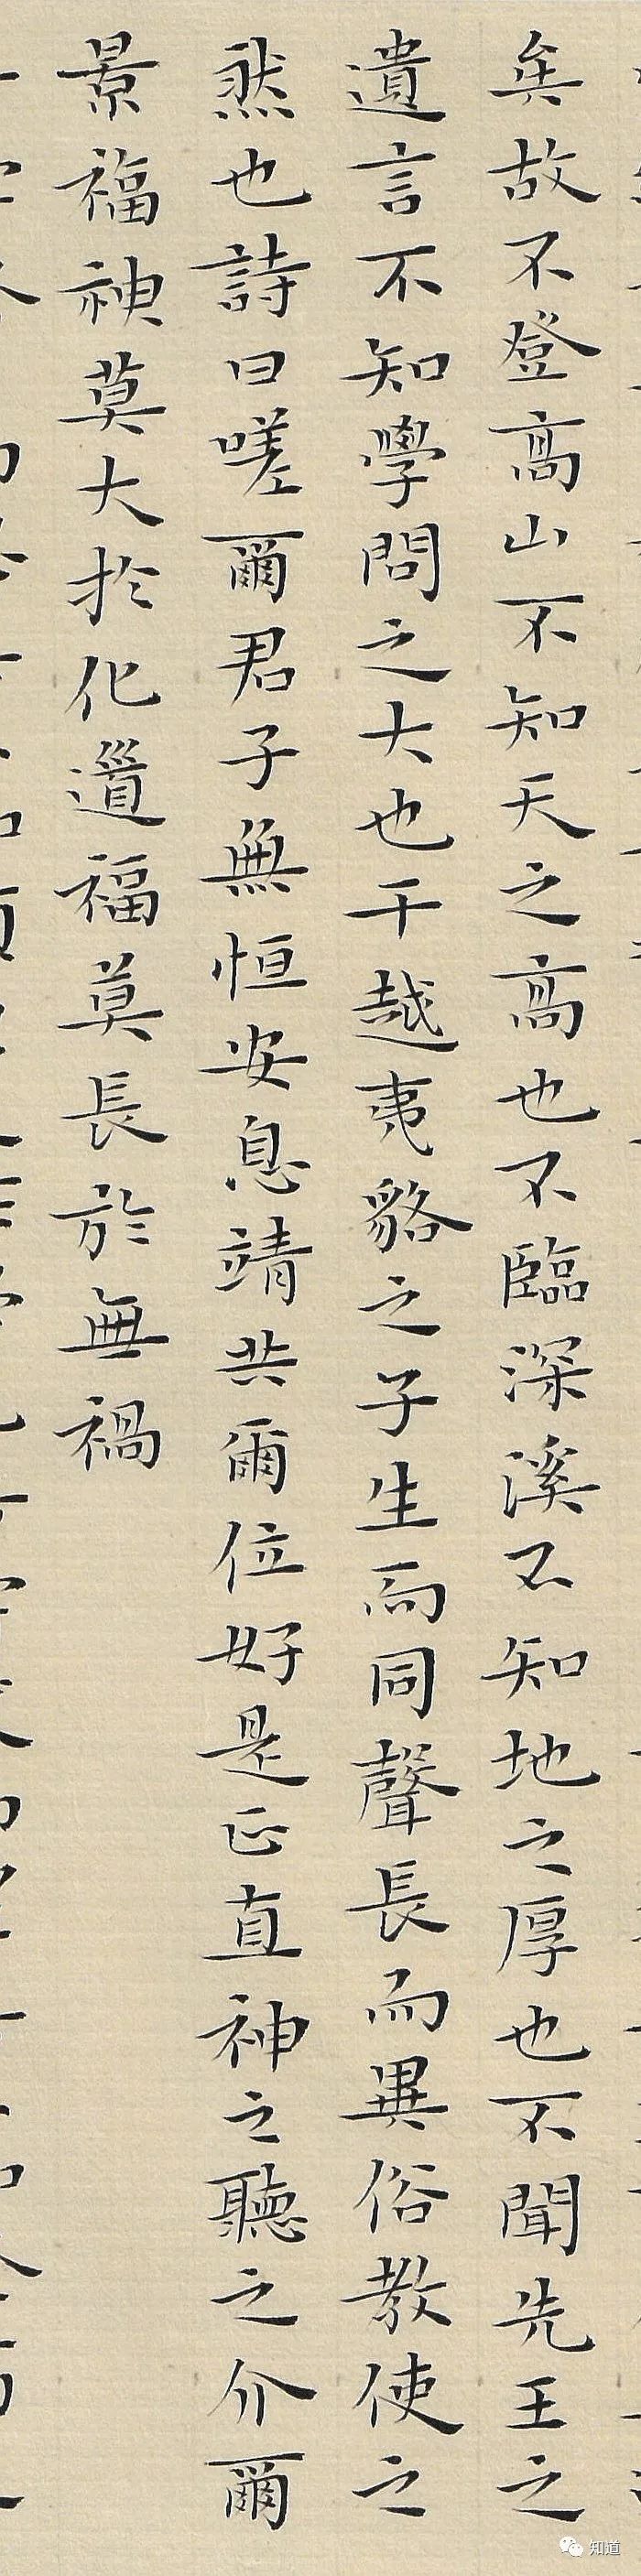 矣故不登高山不知天之高也不臨深溪不知地之厚也不聞先王之
遺言不知學問之大也干越夷貉之子生而同聲長而異俗教使之
然也詩曰嗟爾君子無恒安息靖共爾位好是正直神之聽之介爾
景福神莫大於化道福莫長於無禍
知道